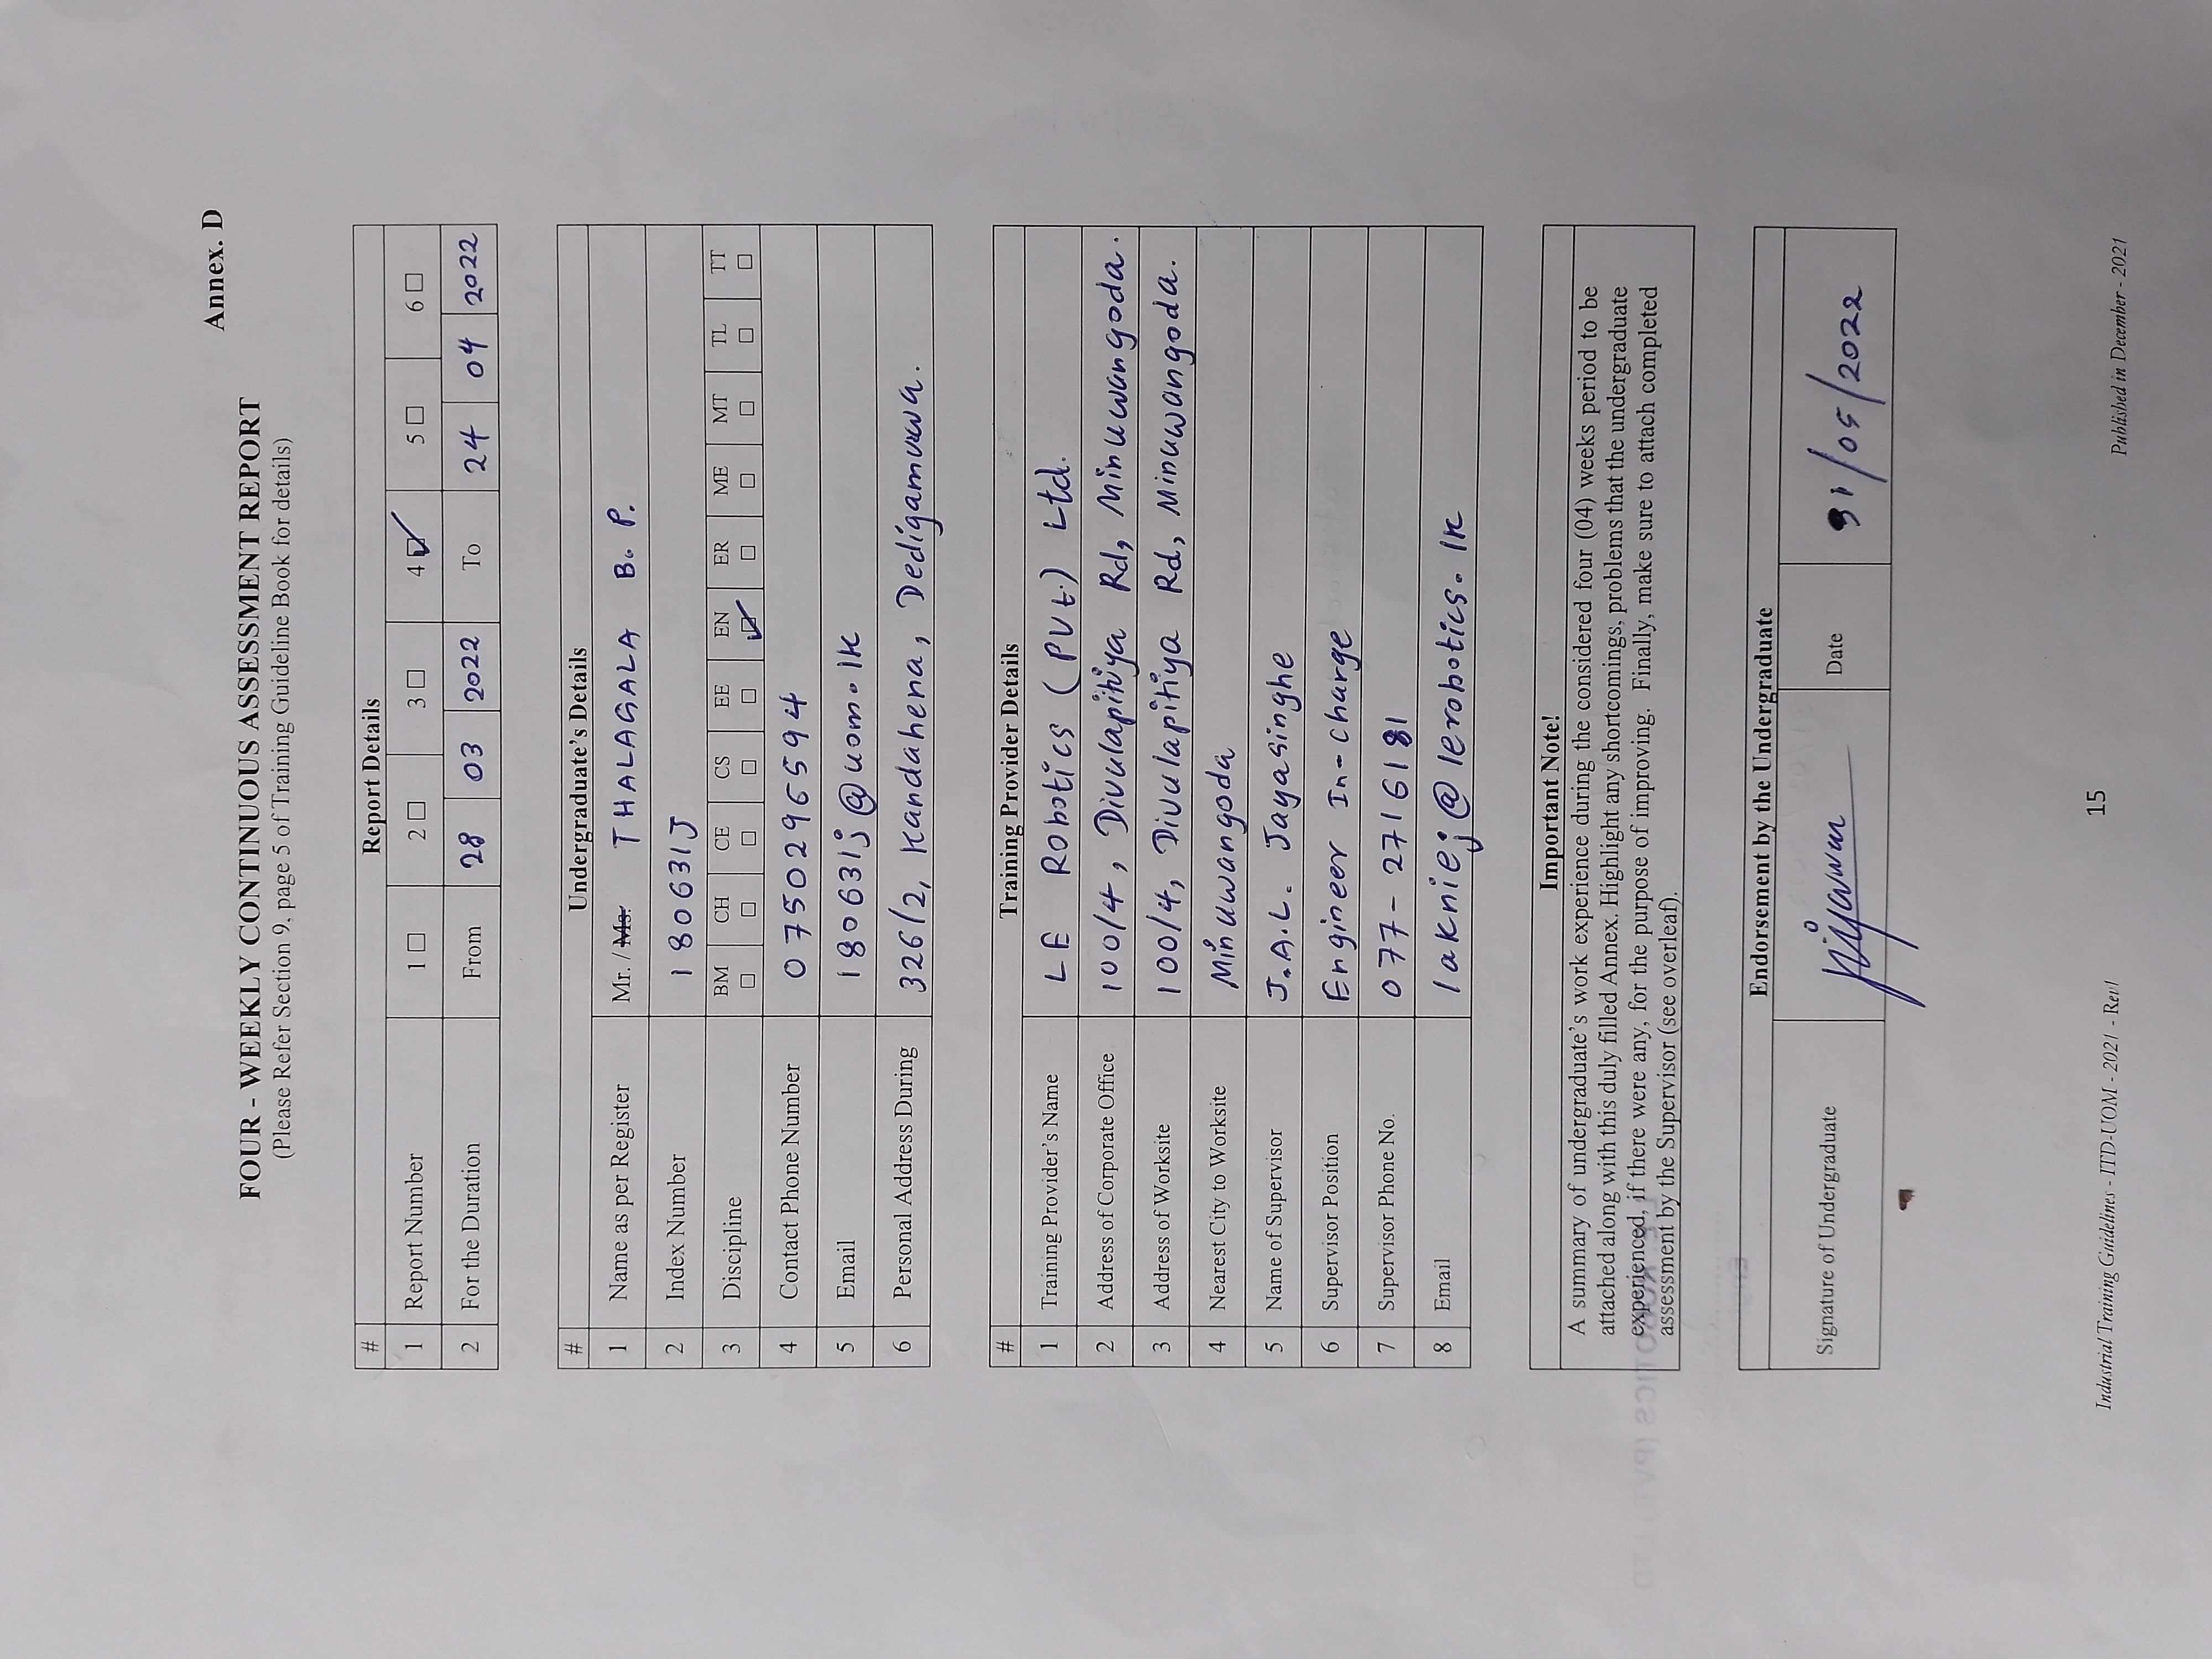 Annex. D
FOUR - WEEKLY CONTINUOUS ASSESSMENT REPORT
(Please Refer Section 9, page 5 of Training Guideline Book for details)
# Report Details
1 Report Number 1 ☐ 2 ☐ 3 ☐ 4 ☑ 5 ☐ 6 ☐
2 For the Duration From 28 03 2022 To 24 04 2022
# Undergraduate's Details
1 Name as per Register Mr. / Ms. THALAGALA B. P.
2 Index Number 180631J
3 Discipline BM ☐ CH ☐ CE ☐ CS ☐ EE ☐ EN ☑ ER ☐ ME ☐ MT ☐ TL ☐ TT ☐
4 Contact Phone Number 0750296594
5 Email 180631j@uom.lk
6 Personal Address During 326/2, Kandahena, Dedigamuwa.
# Training Provider Details
1 Training Provider's Name LE Robotics (PVt.) Ltd.
2 Address of Corporate Office 100/4, Divulapitiya Rd, Minuwangoda.
3 Address of Worksite 100/4, Divulapitiya Rd, Minuwangoda.
4 Nearest City to Worksite Minuwangoda
5 Name of Supervisor J.A.L. Jayasinghe
6 Supervisor Position Engineer In-charge
7 Supervisor Phone No. 077-2716181
8 Email lakniej@lerobotics.lk
Important Note!
A summary of undergraduate's work experience during the considered four (04) weeks period to be
attached along with this duly filled Annex. Highlight any shortcomings, problems that the undergraduate
experienced, if there were any, for the purpose of improving. Finally, make sure to attach completed
assessment by the Supervisor (see overleaf).
Endorsement by the Undergraduate
Signature of Undergraduate Date 31/05/2022
15
Industrial Training Guidelines - ITD-UOM - 2021 - Rev1
Published in December - 2021